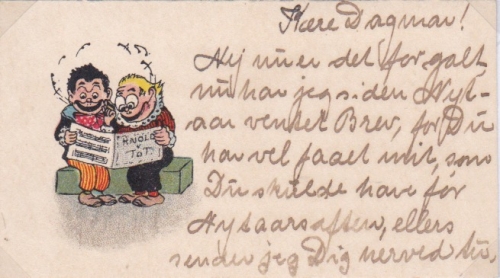 Kære Dagmar!
Nej nu er det for galt,
nu har jeg siden Nyt-
aar ventet Brev, for Du
har vel faaet mit, som
Du skulde have før
Nytaarsaften, ellers
sender jeg Dig herved
KNOLD
TOT